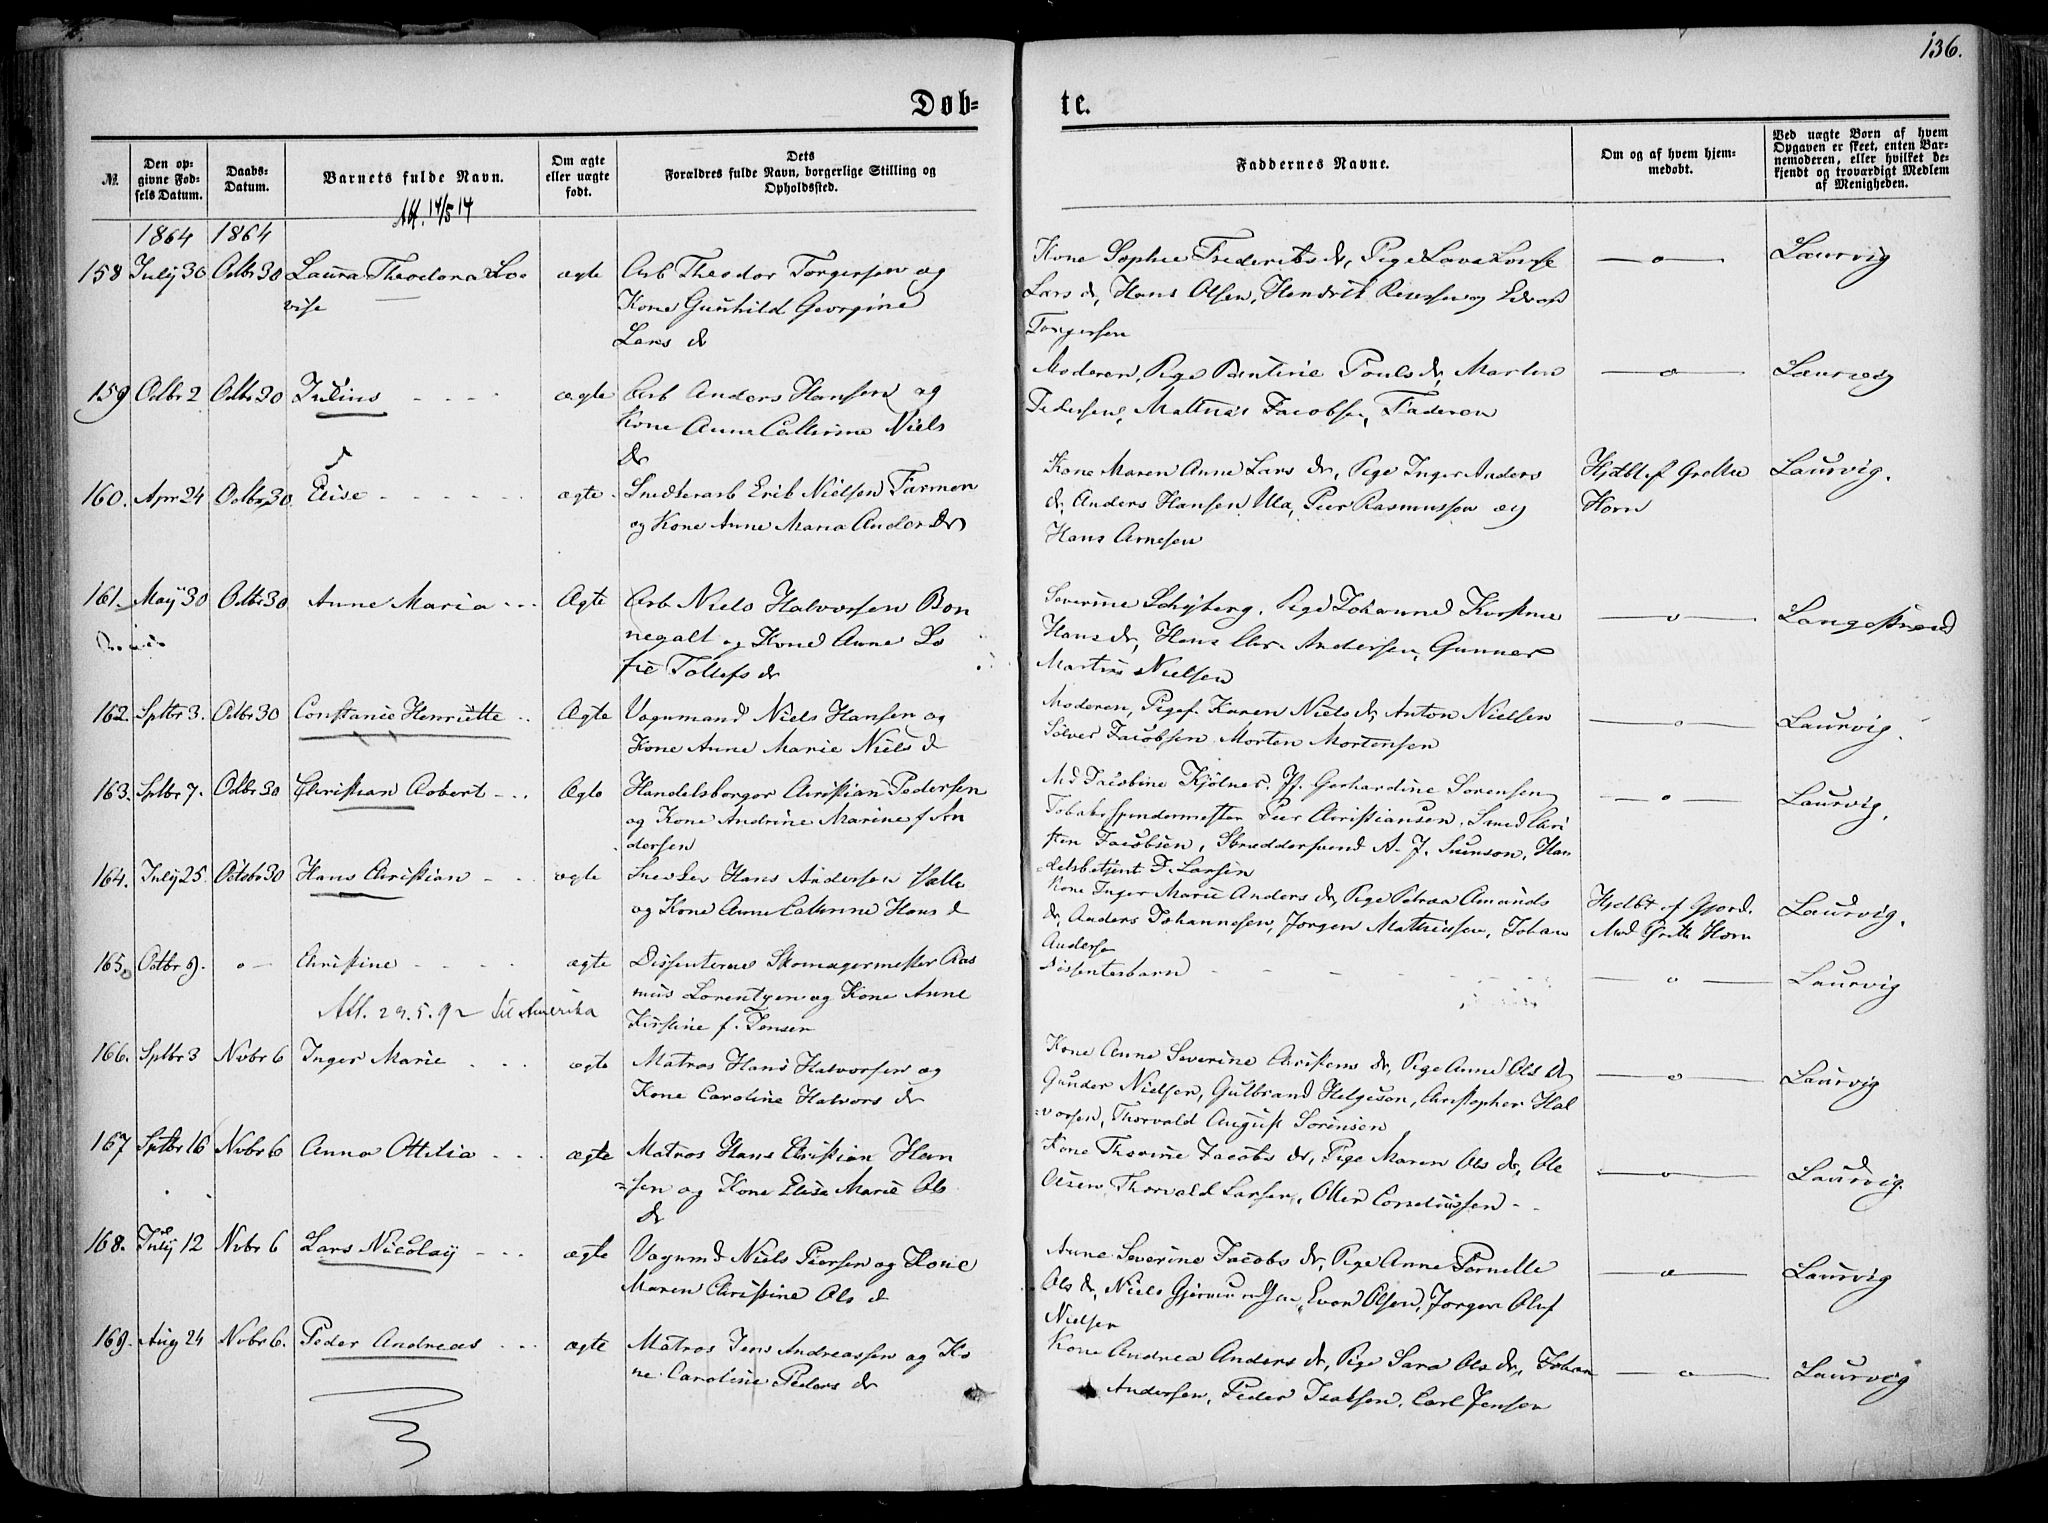 136.
Døb=
te.
№.
Den op=
givne Fød=
sels Datum.
Daabs=
Datum.
Barnets fulde Navn.
Om ægte
eller uægte
født.
Dets
Forældres fulde Navn, borgerlige Stilling og
Opholdssted.
Faddernes Navne.
Om og af hvem hjem=
medøbt.
Ved uægte Børn af hvem
Opgaven er skeet, enten Bar=
nemoderen, eller hvilket be=
kjendt og troværdigt Medlem
af Menigheden.
Att. 14/5 14
1864 1864
158 July 30 Octbr 30 Laura Theodora Lo
vise
ægte
Arb Theodor Torgersen og
Kone Gunhild Georgine
Lars dr
Kone Sophie Frederiks dr, Pige Lava Lovise
Lars dr, Hans Olsen, Hendrik og
Torgersen
—o—
Laurvig
159 Octbr 2 Octbr 30 Julius
ægte
Arb Anders Hansen og
Kone Anne Cathrine Niels
dr
Moderen, Pige Bentine Pouls dr, Martin
Pedersen, Mathias Jacobsen, Faderen
—o—
Laurvig
160. Apr 24 Octbr 30. Elise
ægte
Snedkerarb Erik Nielsen Farmen
og Kone Anne Maria Anders dr
Kone Maren Anne Lars dr, Pige Inger Anders
dr, Anders Hansen Ula, Peer Rasmussen og
Hans Arnesen
Hjdbt af Grethe
Horn
Laurvig.
161. May 30 Octbr 30 Anne Maria
Ægte
Arb Niels Halvorsen Bon
negalt og Kone Anne So
fie Tollefs dr
Severine Schyberg, Pige Johanne Kirstine
Hans dr, Hans Chr. Andersen, Gunner
Martin Nielsen
—o—
Langestrand
162. Sptbr 3. Octbr 30 Constance Henriette
Ægte
Vognmand Niels Hansen og
Kone Anne Marie Niels d
Moderen, Pige Karen Niels dr, Anton Nielsen
Sölver Jacobsen Morten Mortensen
—o—
Laurvig.
163. Sptbr 7. Octbr 30 Christian Robert
Ægte
Handelsborger Christian Pedersen
og Kone Andrine Marine f An
dersen
Md Jacobine Kjölner, Jf. Gerhardine Sörensen
Tobaksspindermester Peer Christiansen, Smed Chri
sten Jacobsen, Skræddersvend A. J. Svenson, Han
delsbetjent F. Larsen
—o—
Laurvig.
164. July 25 Octobr 30 Hans Christian
ægte
Snedker Hans Andersen Valle
og Kone Anne Cathrine Hans d
Kone Inger Marie Anders dr, Pige Petrea Amunds
dr, Anders Johannesen, Jørgen Mathiesen, Johan
Anderse
Hjdbt af Gjord.
Md Grethe Horn
Laurvig.
165. Octbr 9. o— Christine
Att. 29.5.92 til Amerika
ægte
Dissenterne Skomagermester Ras
mus Lorentzen og Kone Anne
Kirstine f. Jensen
Dissenterbarn
—o—
Laurvig
166. Sptbr 3 Nvbr 6 Inger Marie
ægte
Matros Hans Halvorsen og
Kone Caroline Halvors dr
Kone Anne Severine Christens dr, Pige Anne Ols dr
Gunder Nielsen, Gulbrand Helgeson, Christopher Hal
vorsen, Thorvald August Sörensen
—o—
Laurvig
167 Sptbr 16 Nvbr 6 Anna Ottilia
ægte
Matros Hans Christian Han
sen og Kone Elise Marie Ols
dr
Kone Thorine Jacobs dr, Pige Maren Ols dr, Ole
Olsen Thorvald Larsen, Otter Corneliussen
—o—
Laurvig.
168. July 12 Nvbr 6 Lars Nicolay
ægte
Vognmd Niels Peersen og Kone
Maren Christine Ols d
Anne Severine Jacobs dr, Pige Anne Pernelle
Ols dr, Niels Gjermundsen, Even Olsen, Jørgen Oluf
Nielsen
—o—
Laurvig
169. Aug 24 Nvbr 6. Peder Andreas
ægte
Matros Jens Andreassen og Ko
ne Caroline Peders dr
Kone Andrea Anders dr, Pige Sara Ols dr, Johan
Andersen, Peder Isaksen, Carl Jensen
—o—
Laurvig